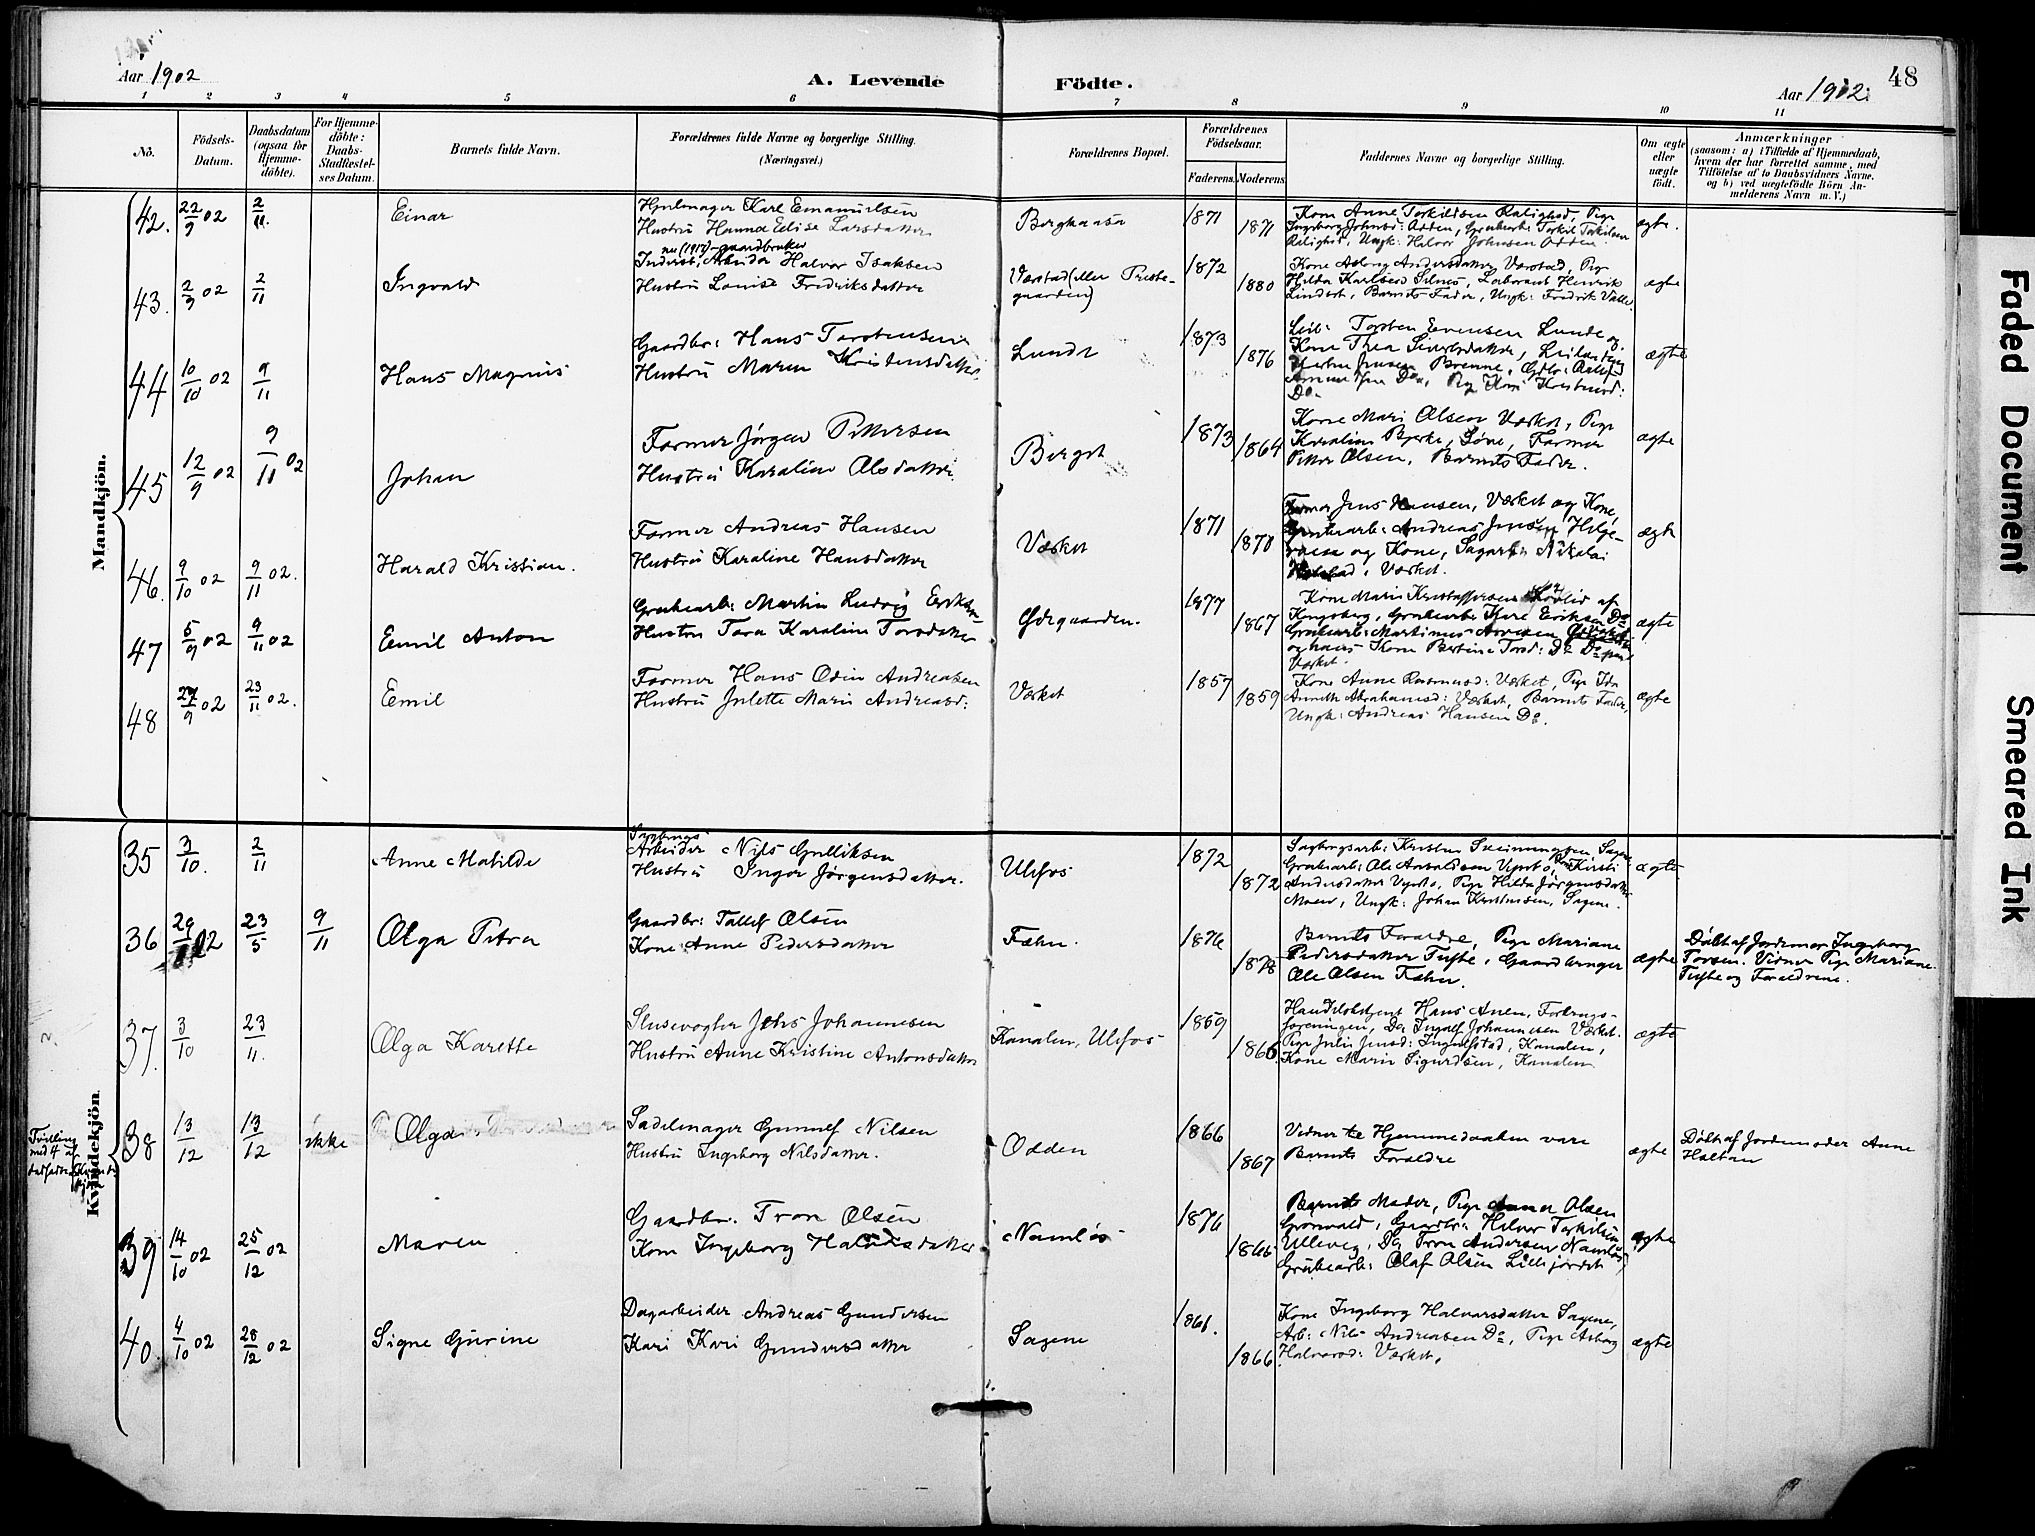 Aar 1902
A. Levende Födte.
Aar 1902. 48
1 2 3 4 5 6 7 8 9 10 11
No.
Födsels-
Datum.
Daabsdatum
(ogsaa for
Hjemme-
döbte).
For Hjemme-
döbte:
Daabs-
Stadfæstel-
ses Datum.
Barnets fulde Navn.
Forældrenes fulde Navne og borgerlige Stilling.
(Næringsvei.)
Forældrenes Bopæl.
Forældrenes
Födselsaar.
Faderens. Moderens.
Faddernes Navne og borgerlige Stilling.
Om ægte
eller
uægte
födt.
Anmærkninger
(saasom: a) i Tilfælde af Hjemmedaab,
hvem der har forrettet samme, med
Tilföielse af to Daabsvidners Navne,
og b) ved uægtefödte Börn An-
melderens Navn m. V.)
Mandkjön.
42. 22/9 02 2/11. Einar
Hjulmager Karl Emanuelsen
Hustru Hanna Elise Larsdatter
Berghaasa 1871 1871
Kone Anne Torkildsen Ralighed, Pige
Ingeborg Johnsd: Odden, Grubearb: Torkil Torkilsen
Ralighed, Ungk: Halvor Johnsen Odden.
ægte.
43. 2/9 02 2/11 Ingvald
nu (1917) gaardbruker
Inderst, Arbeider Halvor Isaksen
Hustru Lovise Fredriksdatter
Værstad (eller Preste-
gaarden)
1872 1880
Kone Aslaug Andersdatter Værstad, Pige
Hilda Karlsend Silnes, Laborant Henrik
Lindset, Barnets Fader, Ungk: Fredrik Valle
ægte
44 10/10 02 9/11 Hans Magnus
Gaardbr: Hans Torstensen
Hustru Maren Kristensdatter
Lunde 1873 1876
Leil: Torsten Evensen Lunde og
Kone Thea Siversdatter,
Brenne,
Do.
ægte
45 12/9 02 9/11 02 Johan
Former Jörgen Pettersen
Hustru Karaline Olsdatter
Berget 1873 1864
Kone Mari Olsen Værket, Pige
Karaline Bjerke, Söne, Former
Petter Olsen, Barnets Fader.
ægte
46. 9/10 02 9/11 02. Harald Kristian.
Former Andreas Hansen
Hustru Karaline Hansdatter
Værket 1871 1870
Former Jens Hansen, Værket og Kone,
Grubearb: Andreas Jensen Helje-
og Kone, Sagarb: Nikolai
Værket.
ægte
47 5/9 02 9/11 02 Emil Anton
Grubearb: Martin Ludvig Eriksen
Hustru Tora Karaline Torsdatter
Øvregaarden. 1877 1867
Kone Maren Kristoffersen
Kongsberg, Grubearb: Kjere Eriksen Do
Grubearb: Martinus Arvesen
og hans Kone Bertine Torsd: Do
Værket.
ægte
48 27/9 02 23/11 02. Emil
Former Hans Odin Andreasen
Hustru Julette Marie Andreasd:
Værket 1857 1859
Kone Anne Rasmusd: Værket, Pige Ida
Annette Abrahamsd: Værket, Barnets Fader,
Ungk: Andreas Hansen Do.
ægte
Kvindekjön
35 3/10. 2/11 Anne Matilde
Sagbrugs-
Arbeider Nils Gulliksen
Hustru Inger Jörgensdatter.
Ulefos 1872 1872
Sagbrugsarb: Kristen Sveinungsen Sagen
Grubearb: Ole Anvaldsen Vipeto, Kone Kirsti
Andersdatter Vipeto, Pige Hilda Jörgensdatter
Moen, Ungk: Johan Kristensen, Sagene.
ægte
36 29/ 02 23/5 9/11 Olga Petra
Gaardbr: Tallef Olsen
Kone Anne Pedersdatter
Fæhn. 1876 1878
Barnets Foraldre, Pige Mariane
Pedersdatter Tufte, Gaardbruger
Ole Olsen Fæhn.
ægte
Döbt af Jordemor Ingeborg
Torsen. Vidner Pige Mariane
Tufte og Forældrene.
37. 3/10 23/11. Olga Karette
Slusevogter Jens Johannesen
Hustru Anne Kristine Antonsdatter
Kanalen, Ulefos 1859 1866
Handelsbetjent Hans Anen, Forbrugs-
foreningen, Do Ingulf Johannesen Værket.
Pige Julie Jensd: Ingulfstad, Kanalen,
Kone Marie Sigurdsen, Kanalen
ægte
Tvilling
med 4 af
dødfødte
38 13/12 13/12 ikke Olga
Sadelmager Gunulf Nilsen
Hustru Ingeborg Nilsdatter.
Odden 1866 1867
Vidner til Hjemmedaaben vare
Barnets Forældre
ægte
Döbt af Jordemoder Anne
Haltan
39 14/10 02 25/12 02 Maren
Gaardbr. Tron Olsen
Kone Ingeborg Halvorsdatter
Namløs 1876 1866
Barnets Moder, Pige Anne Olsen
Grönvald, Gaardbr: Helvor Torkilsen
Ullevig, Do Tron Andersen Namløs,
Grubearb: Olaf Olsen Lillejordet
ægte
40. 4/10 02 28/12 02 Signe Gurine
Dagarbeider Andreas Gundersen
Kari Kari Gundersdatter
Sagene 1861. 1866
Kone Ingeborg Halvorsdatter Sagene,
Arb: Nils Andreasen Do, Pige Asborg
Halvorsd: Værket.
ægte
Faded Document
Smeared Ink